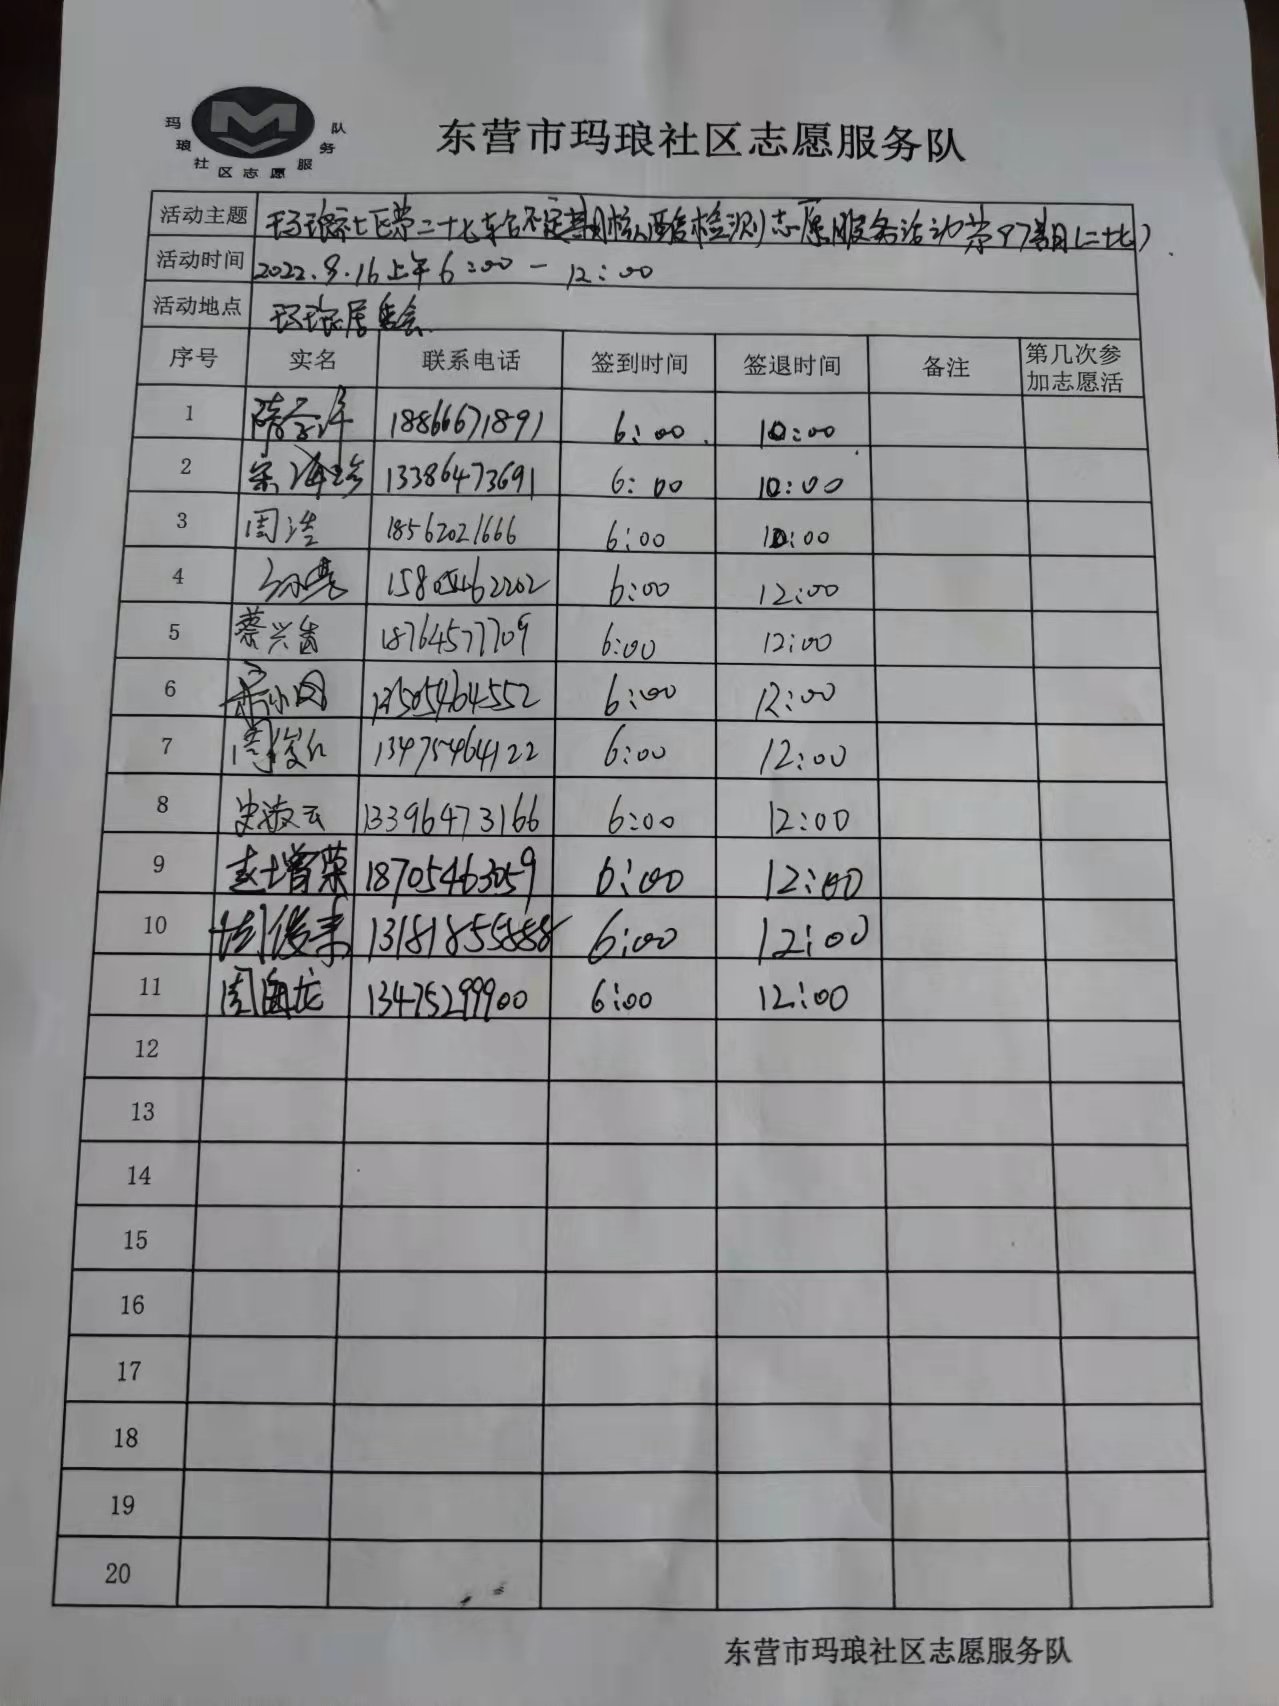 玛琅社区志愿服务队
东营市玛琅社区志愿服务队
活动主题 玛琅社区第二十七轮不定期核酸检测志愿服务活动第97期(二十七)
活动时间 2022.9.16上午6:00-12:00
活动地点 玛琅居委会
序号 实名 联系电话 签到时间 签退时间 备注 第几次参
加志愿活
1 18866671891 6:00 10:00
2 宋海珍 13386473691 6:00 10:00
3 周浩 18562021666 6:00 10:00
4 15805462202 6:00 12:00
5 蔡兴 18764577709 6:00 12:00
6 13505464552 6:00 12:00
7 周俊仁 13475464122 6:00 12:00
8 史淑云 13396473166 6:00 12:00
9 赵增荣 18705463059 6:00 12:00
10 13181855888 6:00 12:00
11 周 龙 13475299900 6:00 12:00
12
13
14
15
16
17
18
19
20
东营市玛琅社区志愿服务队